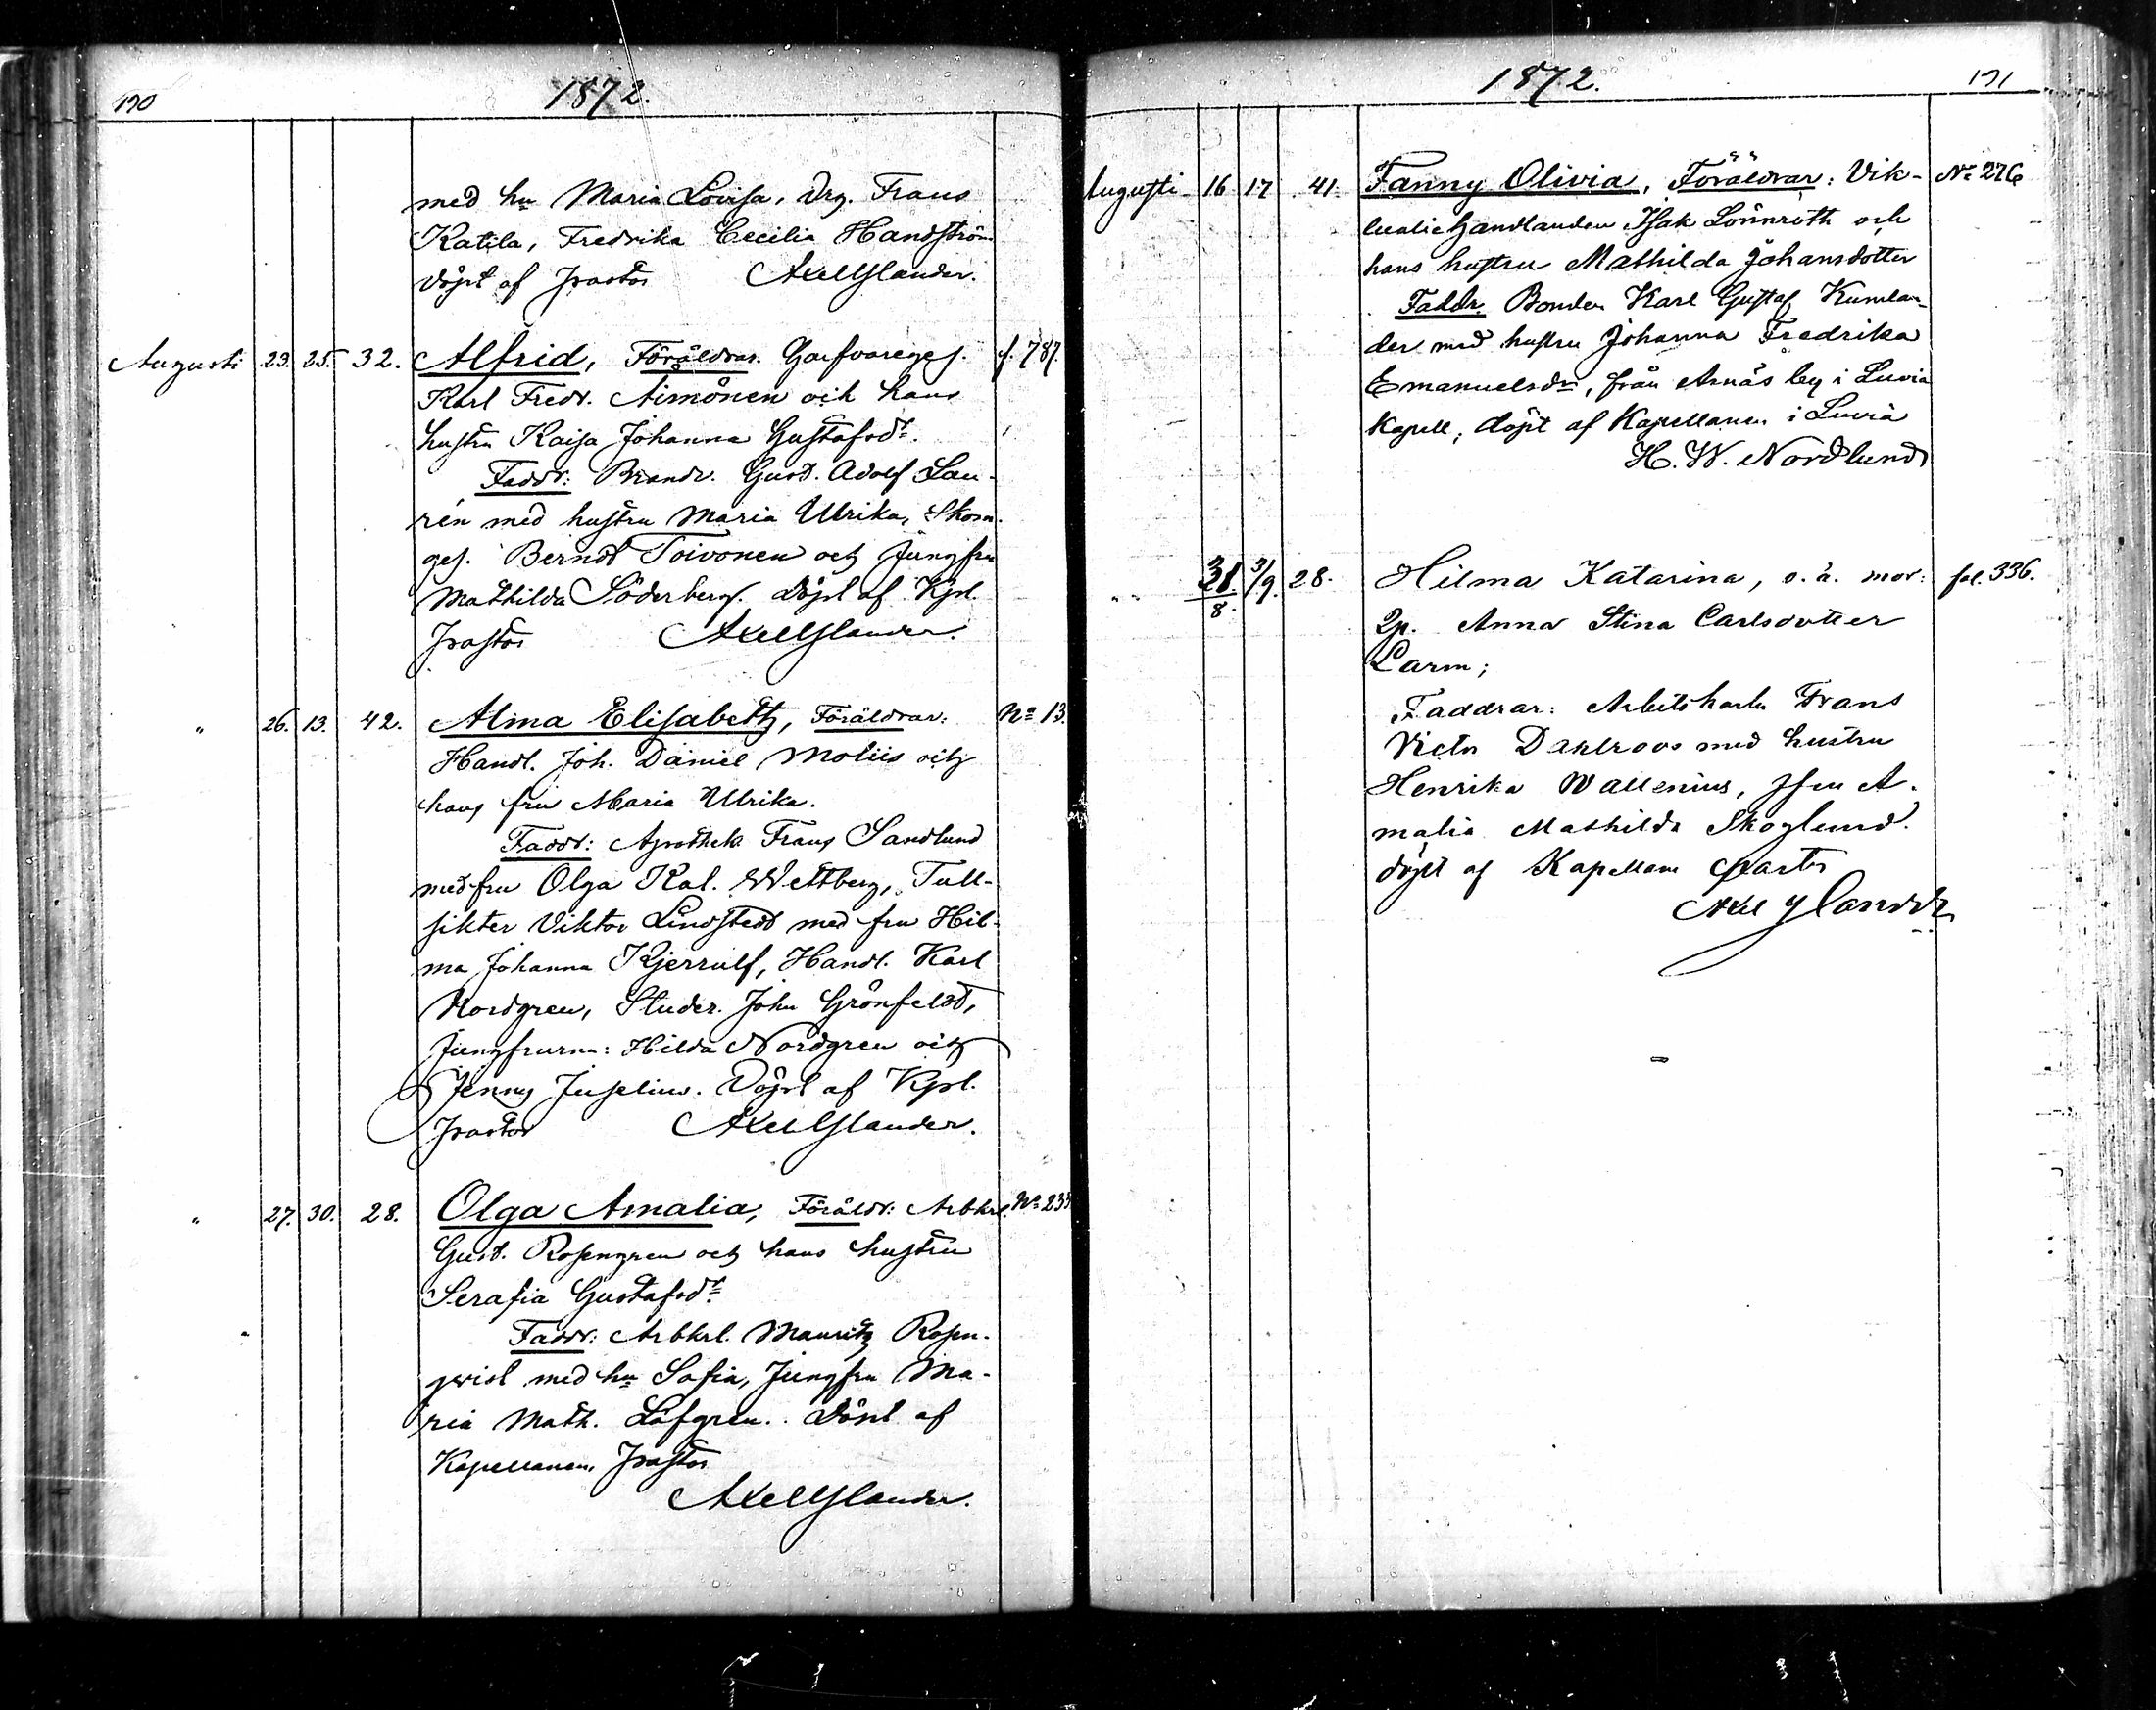 170
1872.
med hu Maria Lovisa, Drg. Frans
Katila, Fredrika Cecilia Handström
döpt af Pastor Axel Ylander.
Augusti 23. 25. 32. Alfrid, Föräldrar. Garfvaregej. f. 787.
Karl Fredr. Aimönen och hans
hustru Kaisa Johanna Gustafsdr.
Faddr: Brandv. Gust. Adolf Lau-
rén med hustru Maria Ulrika, Skom.
gej. Berndt Toivonen och Jungfru
Mathilda Söderberg. Döpt af Kpl.
Pastor Axel Ylander.
" 26. 13. 42. Alma Elisabeth, Föräldrar: No 13.
Handl. Joh. Daniel Moliis och
hans fru Maria Ulrika.
Faddr: Apothek. Frans Sandlund
med fru Olga Kal. Wettberg, Tull-
sikter Viktor Lindstedt med fru Hil-
ma Johanna Kjerrulf, Handl. Karl
Nordgren, Studer. John Grönfeldt,
Jungfrurna: Hilda Nordgren och
Jenny Juselius. Döpt af Kpl.
Pastor Axel Ylander.
" 27. 30. 28. Olga Amalia, Föräldr: Arbkrl. No 233
Gust. Rosengren och hans hustru
Serafia Gustafsdr.
Faddr: Arbkrl. Mauritz Rosen-
qvist med hu Sofia, Jungfru Ma-
ria Math. Löfgren. Döpt af
Kapellanen, Pastor
Axel Ylander.
1872.
171
Augusti 16 17 41. Fanny Olivia, Föräldrar: Vik- No 276
tualiehandlanden Isak Lönnroth och
hans hustru Mathilda Johansdotter
Faddr. Bonden Karl Gustaf Kumlan-
der med hustru Johanna Fredrika
Emanuelsdr, från Arnäs by i Luvia
Kapell, döpt af Kapellanen i Luvia
H. W. Nordlund
" 31/8. 3/9. 28. Hilma Katarina, o. ä. mor: fol. 336.
Qp. Anna Stina Carlsdotter
Larm;
Faddrar: Arbetskarln Frans
Victor Dahlroos med hustru
Henrika Wallenius, Jfru A-
malia Mathilda Skoglund.
döpt af Kapellan Pastor
Axel Ylander